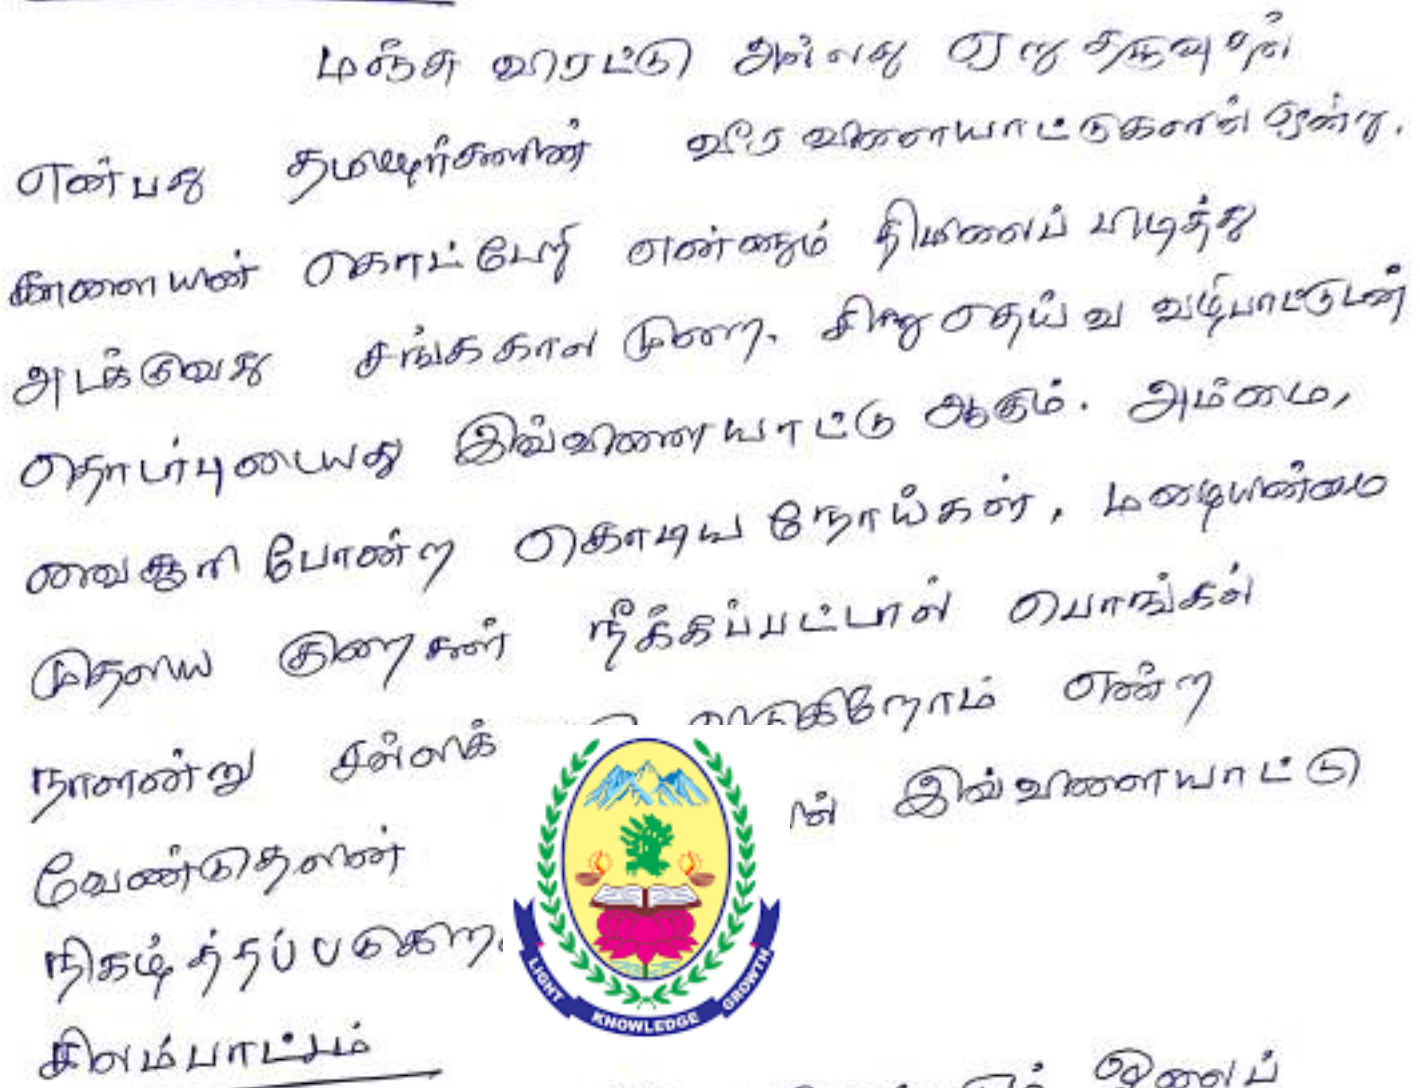 மஞ்சு விரட்டு அல்லது ஏறு தழுவுதல்
என்பது தமிழர்களின் வீர விளையாட்டுகளில் ஒன்று.
காளையின் கொட்டேறி என்னும் திமிலைப் பிடித்து
அடக்குவது சங்ககால முறை. சிறு தெய்வ வழிபாட்டுடன்
தொடர்புடையது இவ்விளையாட்டு ஆகும். அம்மை,
வைசூரி போன்ற கொடிய நோய்கள், மழையின்மை
முதலிய குறைகள் நீக்கப்பட்டால் பொங்கல்
நாளன்று சல்லிக் விடுகிறோம் என்ற
வேண்டுதலின் இவ்விளையாட்டு
நிகழ்த்தப்படுகிற
சிலம்பாட்டம்
ஓலைப்
LIGHT KNOWLEDGE GROWTH